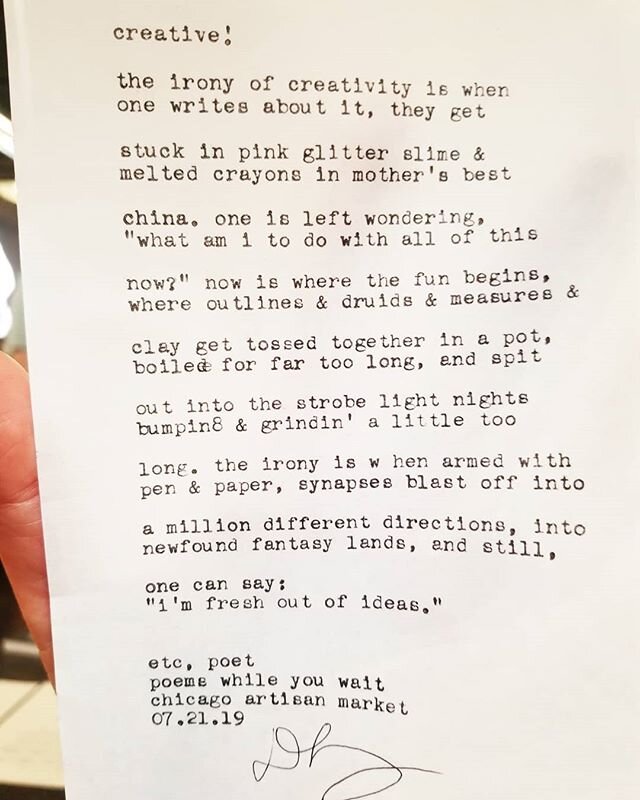 creative!
the irony of creativity is when
one writes about it, they get
stuck in pink glitter slime &
melted crayons in mother's best
china. one is left wondering,
"what am i to do with all of this
now?" now is where the fun begins,
where outlines & druids & measures &
clay get tossed together in a pot,
boiled for far too long, and spit
out into the strobe light nights
bumpin8 & grindin' a little too
long. the irony is w hen armed with
pen & paper, synapses blast off into
a million different directions, into
newfound fantasy lands, and still,
one can say:
"i'm fresh out of ideas."
etc, poet
poems while you wait
chicago artisan market
07.21.19